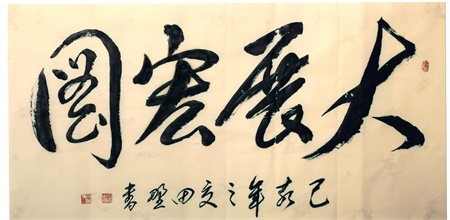 大展宏圖
己亥年之夏田野書